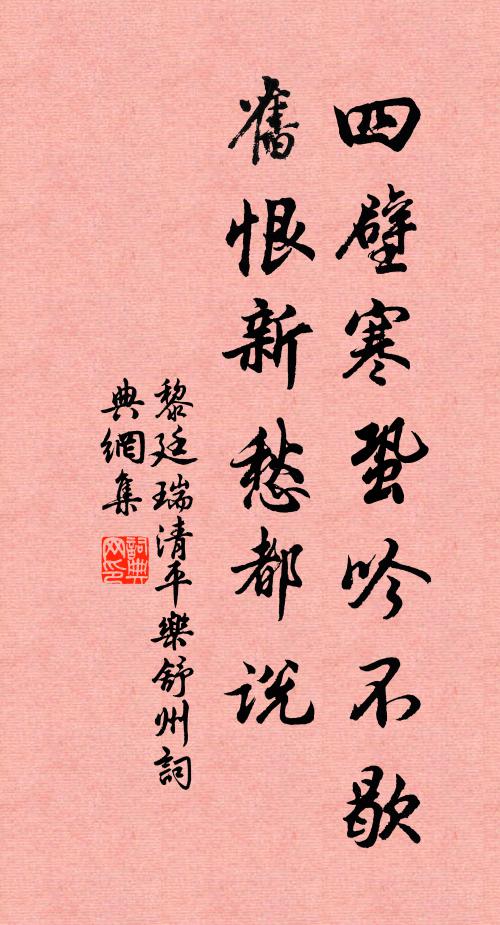 四壁寒蛩吟不歇
舊恨新愁都説
黎廷瑞清平樂舒州詞
典網集
詞典
网印